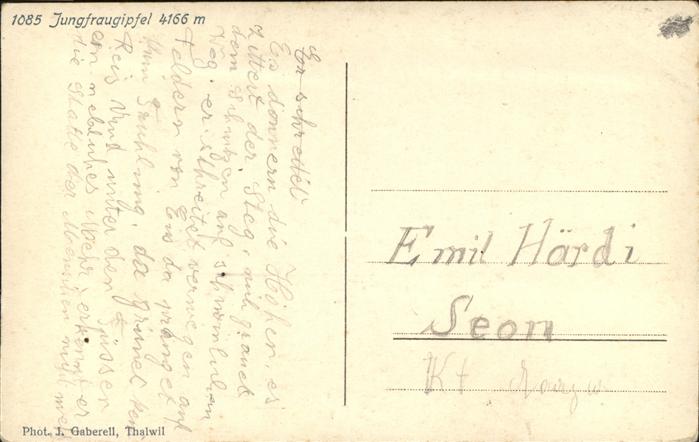 1085 Jungfraugipfel 4166 m
Er schreitet
Es donnern die Höhen, es
zittert der Steg, nich grauet
dem Schützen auf schwindlichem
Weg. er schreitet verwegen auf
Feldern von Eis da pranget
kein Frühling, da grünet kein
Reis Und unter den Füssen
ein nebliches Meer, erkennt er
die Städte der Menschen nicht
Emil Härdi
Seon
Kt
Phot. J. Gaberell, Thalwil